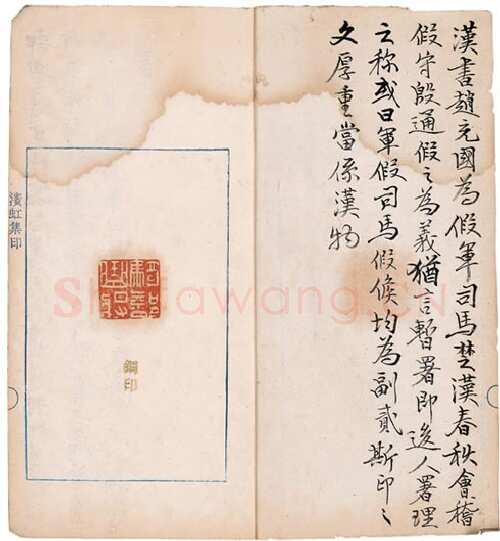 漢書趙充國為假軍司馬楚漢春秋會稽
假守殷通假之為義猶言暫署即逸人署理
之称或曰軍假司馬假候均為副貳斯印之
文厚重當係漢物
銅印
濱虹集印
Shufawang.CN